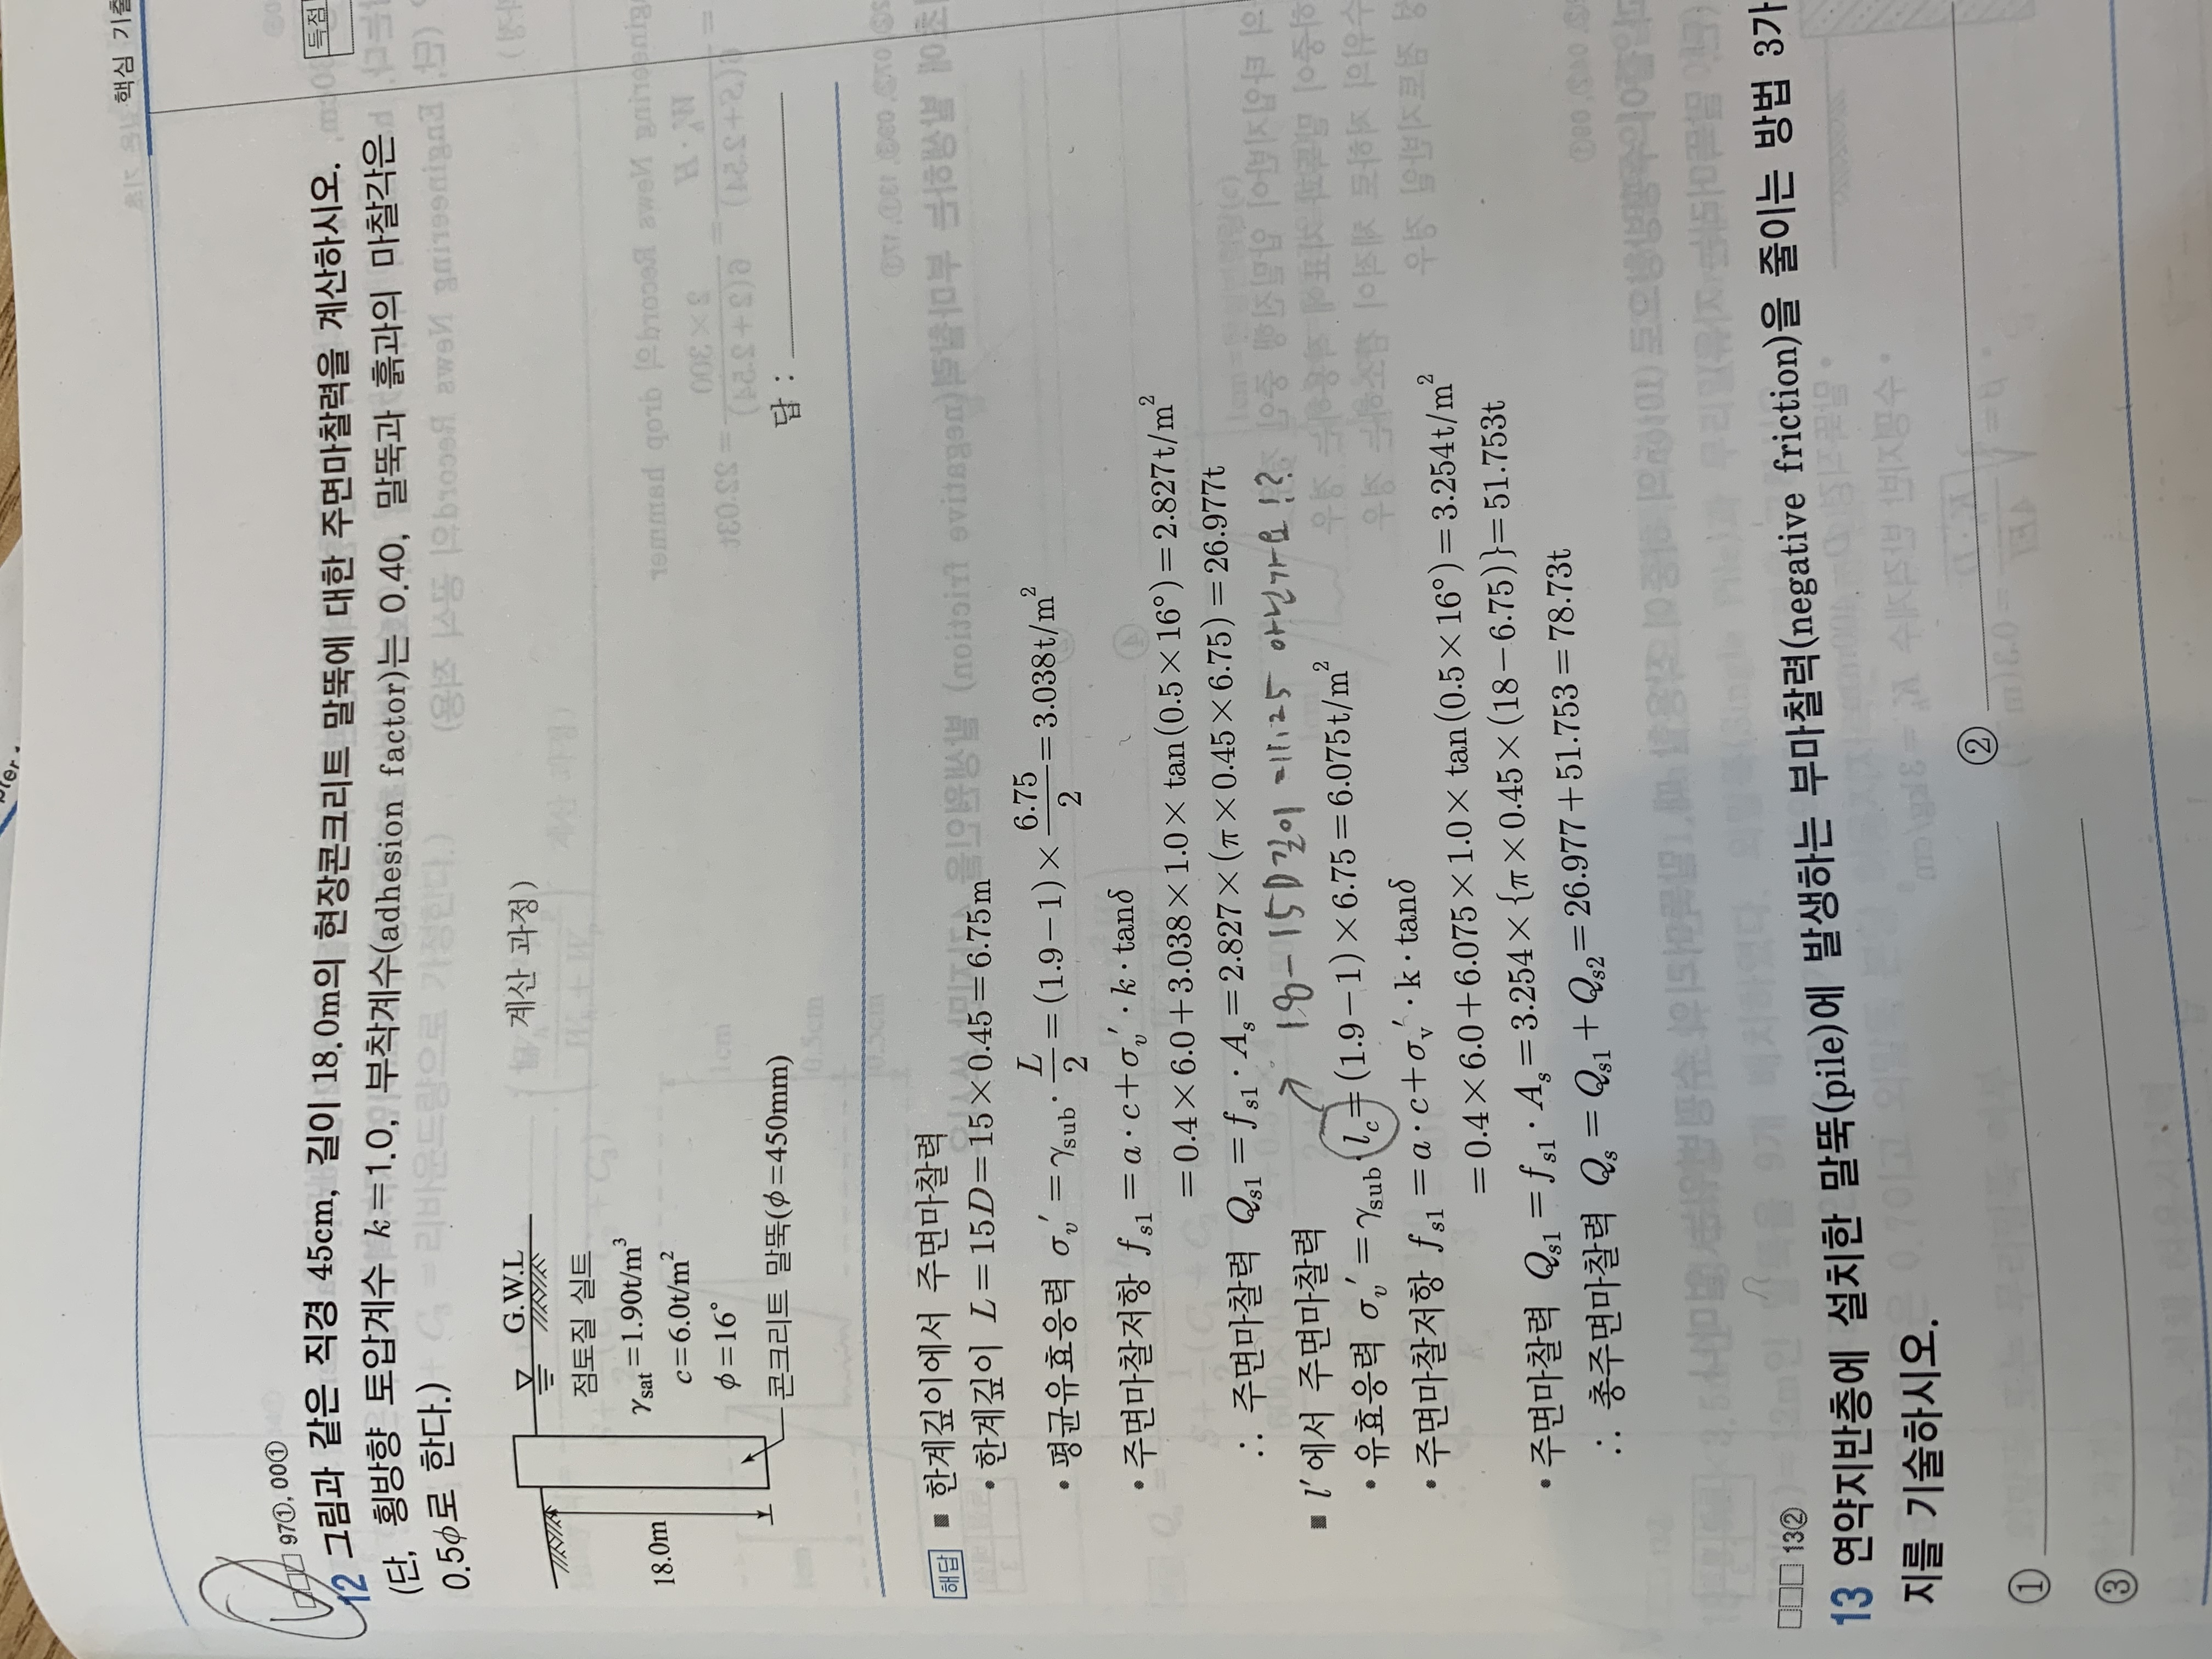 핵심 기출
득점
97①, 00①
12 그림과 같은 직경 45cm, 길이 18.0m의 현장콘크리트 말뚝에 대한 주면마찰력을 계산하시오.
(단, 횡방향 토압계수 k=1.0, 부착계수(adhesion factor)는 0.40, 말뚝과 흙과의 마찰각은
0.5ϕ로 한다.)
계산 과정)
G.W.L
점토질 실트
γsat=1.90t/m³
c=6.0t/m²
ϕ=16°
18.0m
콘크리트 말뚝(ϕ=450mm)
답 :
해답 ■ 한계깊이에서 주면마찰력
• 한계깊이 L=15D=15×0.45=6.75m
• 평균유효응력 σv′=γsub·L/2=(1.9−1)×6.75/2=3.038t/m²
• 주면마찰저항 fs1=a·c+σv′·k·tanδ
=0.4×6.0+3.038×1.0×tan(0.5×16°)=2.827t/m²
∴ 주면마찰력 Qs1=fs1·As=2.827×(π×0.45×6.75)=26.977t
18-15D길이 =11.25 아닌가요!?
■ l′에서 주면마찰력
• 유효응력 σv′=γsub·lc=(1.9−1)×6.75=6.075t/m²
• 주면마찰저항 fs1=a·c+σv′·k·tanδ
=0.4×6.0+6.075×1.0×tan(0.5×16°)=3.254t/m²
• 주면마찰력 Qs1=fs1·As=3.254×{π×0.45×(18−6.75)}=51.753t
∴ 총주면마찰력 Qs=Qs1+Qs2=26.977+51.753=78.73t
13②
13 연약지반층에 설치한 말뚝(pile)에 발생하는 부마찰력(negative friction)을 줄이는 방법 3가
지를 기술하시오.
① ②
③